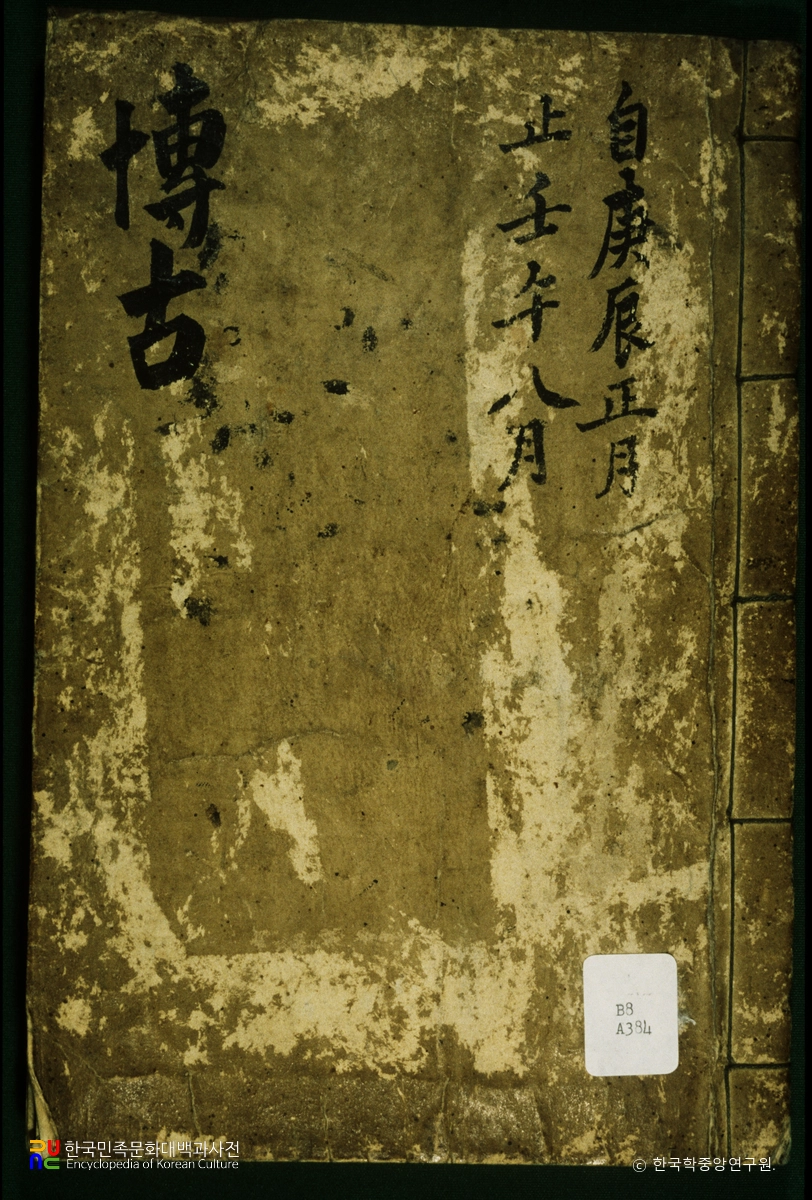 自庚辰正月
止壬午八月
博古
B8
A384
한국민족문화대백과사전
Encyclopedia of Korean Culture
© 한국학중앙연구원.